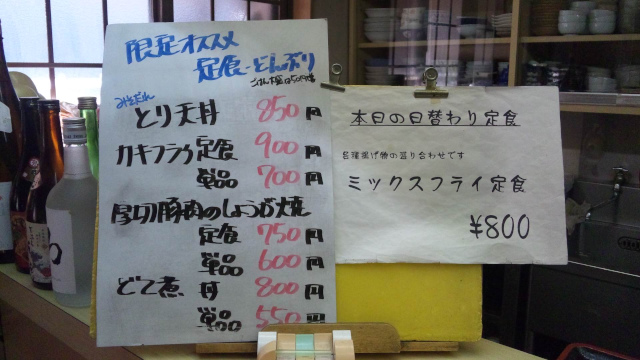 限定オススメ
定食・どんぶり
ごはん大盛は50円増
みそだれ
とり天丼 850円
カキフライ定食 900円
単品 700円
厚切豚肉のしょうが焼
定食 750円
単品 600円
どて煮 丼 800円
単品 550円
本日の日替わり定食
各種揚げ物の盛り合わせです
ミックスフライ定食
¥800